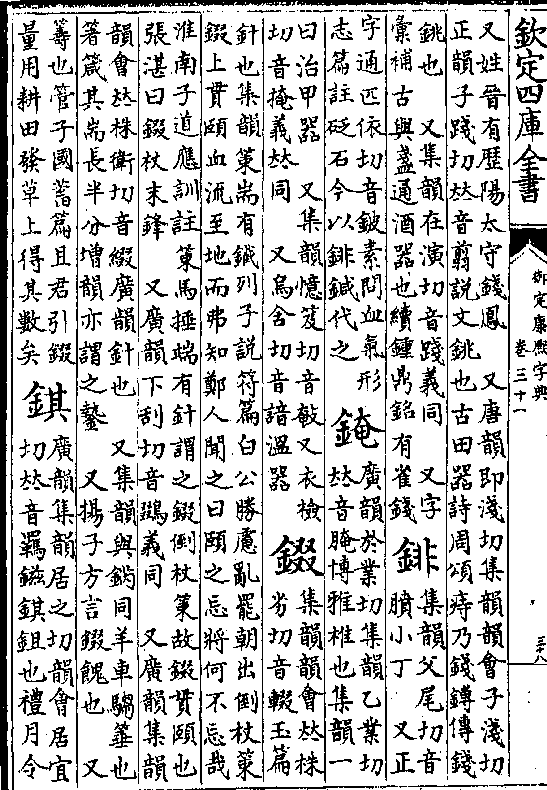 欽定四庫全書
御定康熙字典
卷三十一
三十八
又姓晉有歷陽太守錢鳳 又唐韻即淺切集韻韻會子淺切
正韻子踐切𠀤音翦說文銚也古田器詩周頌痔乃錢鎛傳錢
銚也 又集韻在演切音踐義同 又字
彙補古與盞通酒器也續鍾鼎銘有雀錢
䤵
集韻父尾切音
膹小丁 又正
字通匹依切音鈹素問血氣形
志篇註砭石今以䤵鍼代之
䤶
廣韻於業切集韻乙業切
𠀤音腌博雅椎也集韻一
曰治甲器 又集韻憶笈切音敧又衣檢
切音掩義𠀤同 又烏含切音諳溫器
錣
集韻韻會𠀤株
劣切音輟玉篇
針也集韻策耑有鐵列子說符篇白公勝慮亂罷朝出倒杖策
錣上貫頤血流至地而弗知鄭人聞之曰頤之忘將何不忘哉
淮南子道應訓註策馬捶端有針謂之錣倒杖策故錣貫頤也
張湛曰錣杖末鋒 又廣韻下刮切音鶷義同 又廣韻集韻
韻會𠀤株衛切音綴廣韻針也 又集韻與同羊車騶箠也
著箴其耑長半分增韻亦謂之 又揚子方言錣餽也 又
籌也管子國蓄篇且君引錣
量用耕田發草上得其數矣
錤
廣韻集韻居之切韻會居宜
切𠀤音羈鎡錤鉏也禮月令